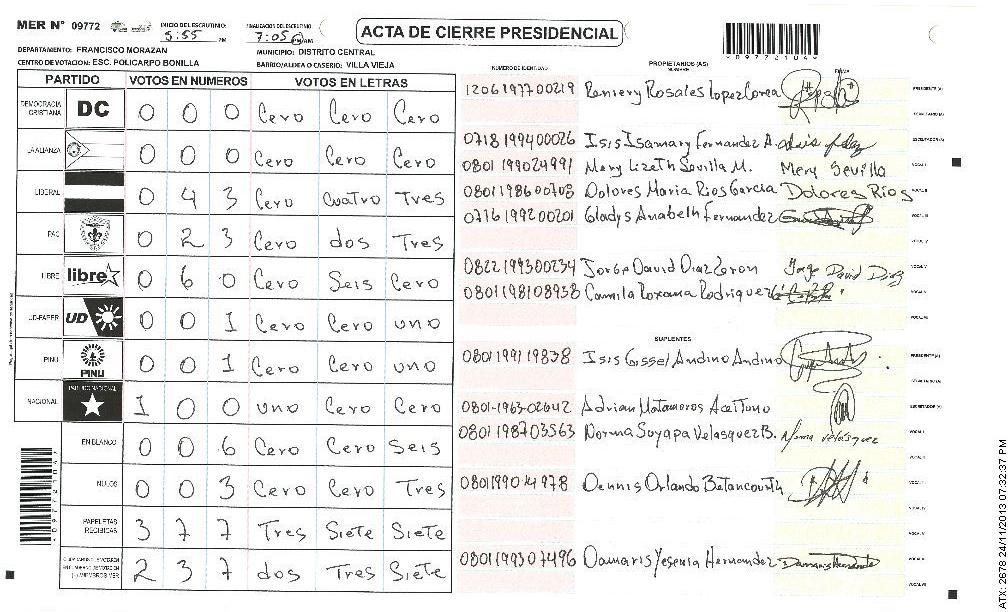 MER N° 09772 INICIO DEL ESCRUTINIO: 5:55 PM FINALIZACION DEL ESCRUTINIO 7:05 PM/AM
ACTA DE CIERRE PRESIDENCIAL
09772104
DEPARTAMENTO: FRANCISCO MORAZAN MUNICIPIO: DISTRITO CENTRAL
CENTRO DE VOTACION: ESC. POLICARPO BONILLA BARRIO/ALDEA O CASERIO: VILLA VIEJA
NUMERO DE IDENTIDAD PROPIETARIOS (AS) NOMBRE FIRMA
PARTIDO VOTOS EN NUMEROS VOTOS EN LETRAS
DEMOCRACIA CRISTIANA DC 0 0 0 Cero Cero Cero
LA ALIANZA 0 0 0 Cero Cero Cero
LIBERAL 0 4 3 Cero Cuatro Tres
PAC 0 2 3 Cero dos Tres
LIBRE libre 0 6 0 Cero Seis Cero
UD-FAPER UD 0 0 1 Cero Cero uno
PINU PINU 0 0 1 Cero Cero uno
NACIONAL PARTIDO NACIONAL 1 0 0 uno Cero Cero
EN BLANCO 0 0 6 Cero Cero Seis
NULOS 0 0 3 Cero Cero Tres
PAPELETAS RECIBIDAS 3 7 7 Tres Siete Siete
2 3 7 dos Tres Siete
1206197700219 Reniery Rosales Lopez Corea PRESIDENTE (A)
SECRETARIO (A)
0718199400026 Isis Isamary Fernandez A. ESCRUTADOR (A)
0801199024991 Mery Lizeth Sevilla M. Mery Sevilla VOCAL I
0801198600703 Dolores Maria Rios Garcia Dolores Rios VOCAL II
0716199200201 Gladys Anabelh Fernandez VOCAL III
VOCAL IV
0822199300234 Jorge David Diaz Ceron Jorge David Diaz VOCAL V
0801198108938 Camila Roxana Rodriguez VOCAL VI
VOCAL VII
SUPLENTES
0801199119838 Isis Gissel Andino Andino PRESIDENTE (A)
SECRETARIO (A)
0801-1963-02642 Adrian Matamoros Aceituno ESCRUTADOR (A)
0801198703563 Norma Suyapa Velasquez B. Norma Velasquez VOCAL I
VOCAL II
0801199014978 Dennis Orlando Betancourth VOCAL III
VOCAL IV
VOCAL V
0801199307496 Damaris Yesenia Hernandez VOCAL VI
VOCAL VII
ATX: 2678 24/11/2013 07:32:37 PM